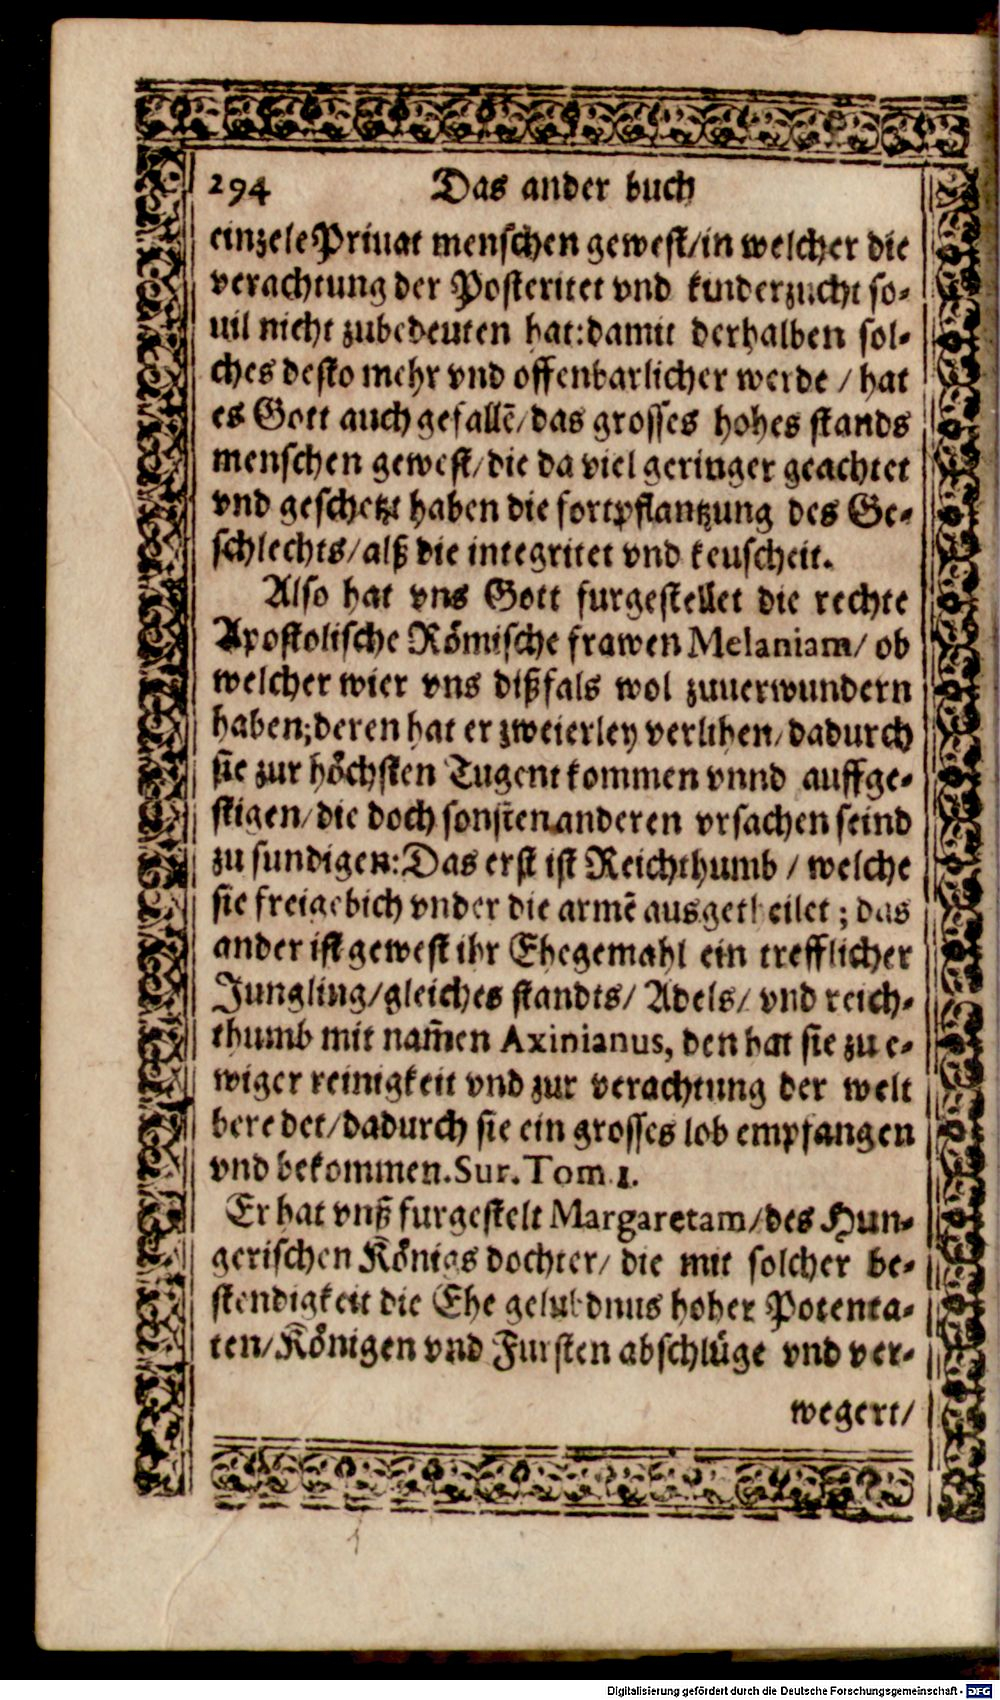 294 Das ander buch
einzele Priuat menschen gewest/in welcher die
verachtung der Posteritet vnd kinderzucht so-
uil nicht zubedeuten hat: damit derhalben sol-
ches desto mehr vnd offenbarlicher werde / hat
es Gott auch gefallẽ/das grosses hohes stands
menschen gewest/die da viel geringer geachtet
vnd geschetzt haben die fortpflantzung des Ge-
schlechts/alß die integritet vnd keuscheit.
Also hat vns Gott furgestellet die rechte
Apostolische Römische frawen Melaniam/ ob
welcher wier vns dißfals wol zuuerwundern
haben;deren hat er zweierley verlihen/dadurch
sie zur höchsten Tugent kommen vnnd auffge-
stigen/die doch sonsten anderen vrsachen seind
zu sundigen: Das erst ist Reichthumb / welche
sie freigebich vnder die armẽ ausgetheilet ; das
ander ist gewest ihr Ehegemahl ein trefflicher
Jungling/gleiches standts/ Adels/ vnd reich-
thumb mit nam̃en Axinianus, den hat sie zu e-
wiger reinigkeit vnd zur verachtung der welt
beredet/dadurch sie ein grosses lob empfangen
vnd bekommen. Sur. Tom. 1.
Er hat vnß furgestelt Margaretam/des Hun-
gerischen Königs dochter/ die mit solcher be-
stendigkeit die Ehe gelubdnus hoher Potenta-
ten/Königen vnd Fursten abschlüge vnd ver-
wegert/
Digitalisierung gefördert durch die Deutsche Forschungsgemeinschaft - DFG